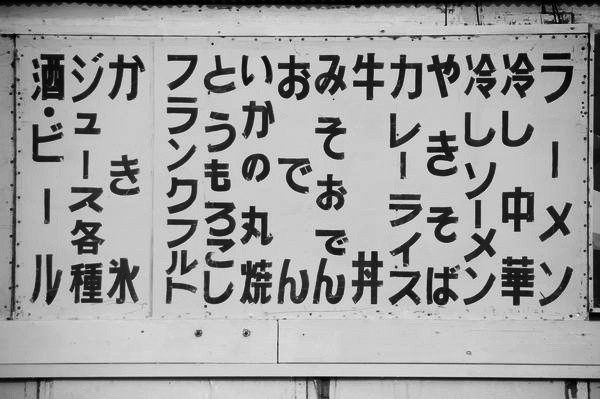 ラーメン
冷し中華
冷しソーメン
やきそば
カレーライス
牛丼
みそおでん
おでん
いかの丸焼
とうもろこし
フランクフルト
かき氷
ジュース各種
酒・ビール